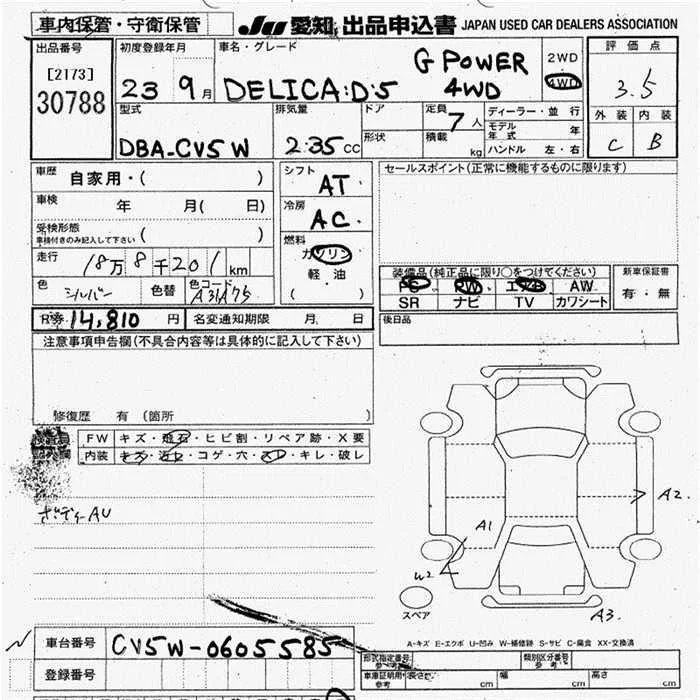 車内保管・守衛保管 JU 愛知 出品申込書 JAPAN USED CAR DEALERS ASSOCIATION
出品番号 初度登録年月 車名・グレード 評価点
[2173]
30788
23 9月 DELICA:D·5 G POWER 4WD 2WD・4WD 3.5
型式 排気量 ドア 定員 7人 ディーラー・並行 外装 内装
DBA-CV5W 2.35cc 形状 積載 kg モデル年式 年 C B
ハンドル 左・右
車歴 自家用・( ) シフト AT セールスポイント(正常に機能するものに限ります)
車検 年 月( 日) 冷房 AC
受検形態
車検付きのみ記入して下さい ( ) 燃料 ガソリン
軽・油
( )
走行 18万8千201km 装備品(純正品に限り○をつけてください) 新車保証書
色 シルバー 色替 色コード A31A75 PS PW エアB AW 有・無
SR ナビ TV カワシート
R券 14,810円 名変通知期限 月 日 後日品
注意事項申告欄(不具合内容等は具体的に記入して下さい)
修復歴 有(箇所 )
FW キズ・飛石・ヒビ割・リペア跡・X要
内装 キズ・汚レ・コゲ・穴・スレ・キレ・破レ
ボディーAU
A1 A2
W2
スペア A3
A-キズ E-エクボ U-凹み W-補修跡 S-サビ C-腐食 XX-交換済
車台番号 CV5W-0605585
登録番号
形式指定番号 参考 類別区分番号 参考
車庫証明用 参考 長さ 幅 高さ cm